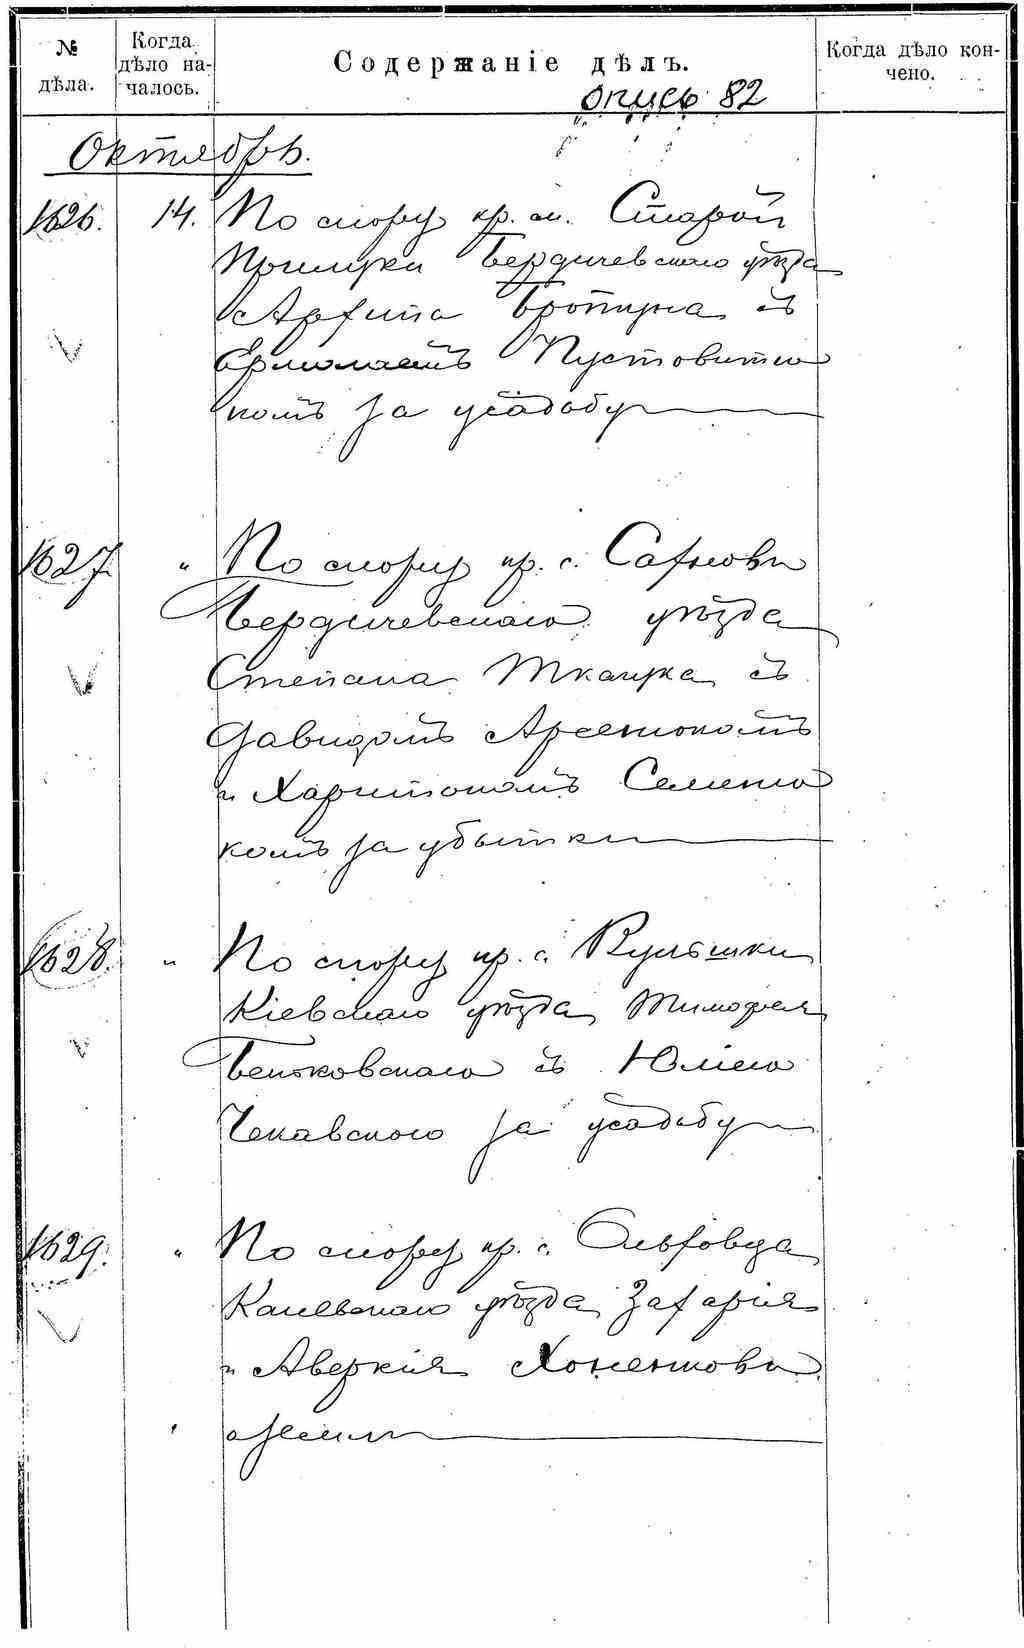 № дѣла.
Когда дѣло началось.
Содержаніе дѣлъ.
Когда дѣло кончено.
опись 82
Октябрь.
1626. 14. По спору кр. м. Старой
Прилуки Бердичевскаго уѣзда
Архипа Бропука съ
Ермолаемъ Пустовитю
комъ за усадьбу
1627 " По спору кр. с.
Бердичевскаго уѣзда
Степана Ткачука съ
Давидомъ Арсенюкомъ
и Харитономъ Семеню
комъ за убытки
1628. " По спору кр. с.
Кіевскаго уѣзда Тимофея
Бенковскаго съ Юліею
Чекавского за усадьбу
1629. " По спору кр. с. Ольховца
Каневскаго уѣзда Захарія
и Аверкія
о землѣ